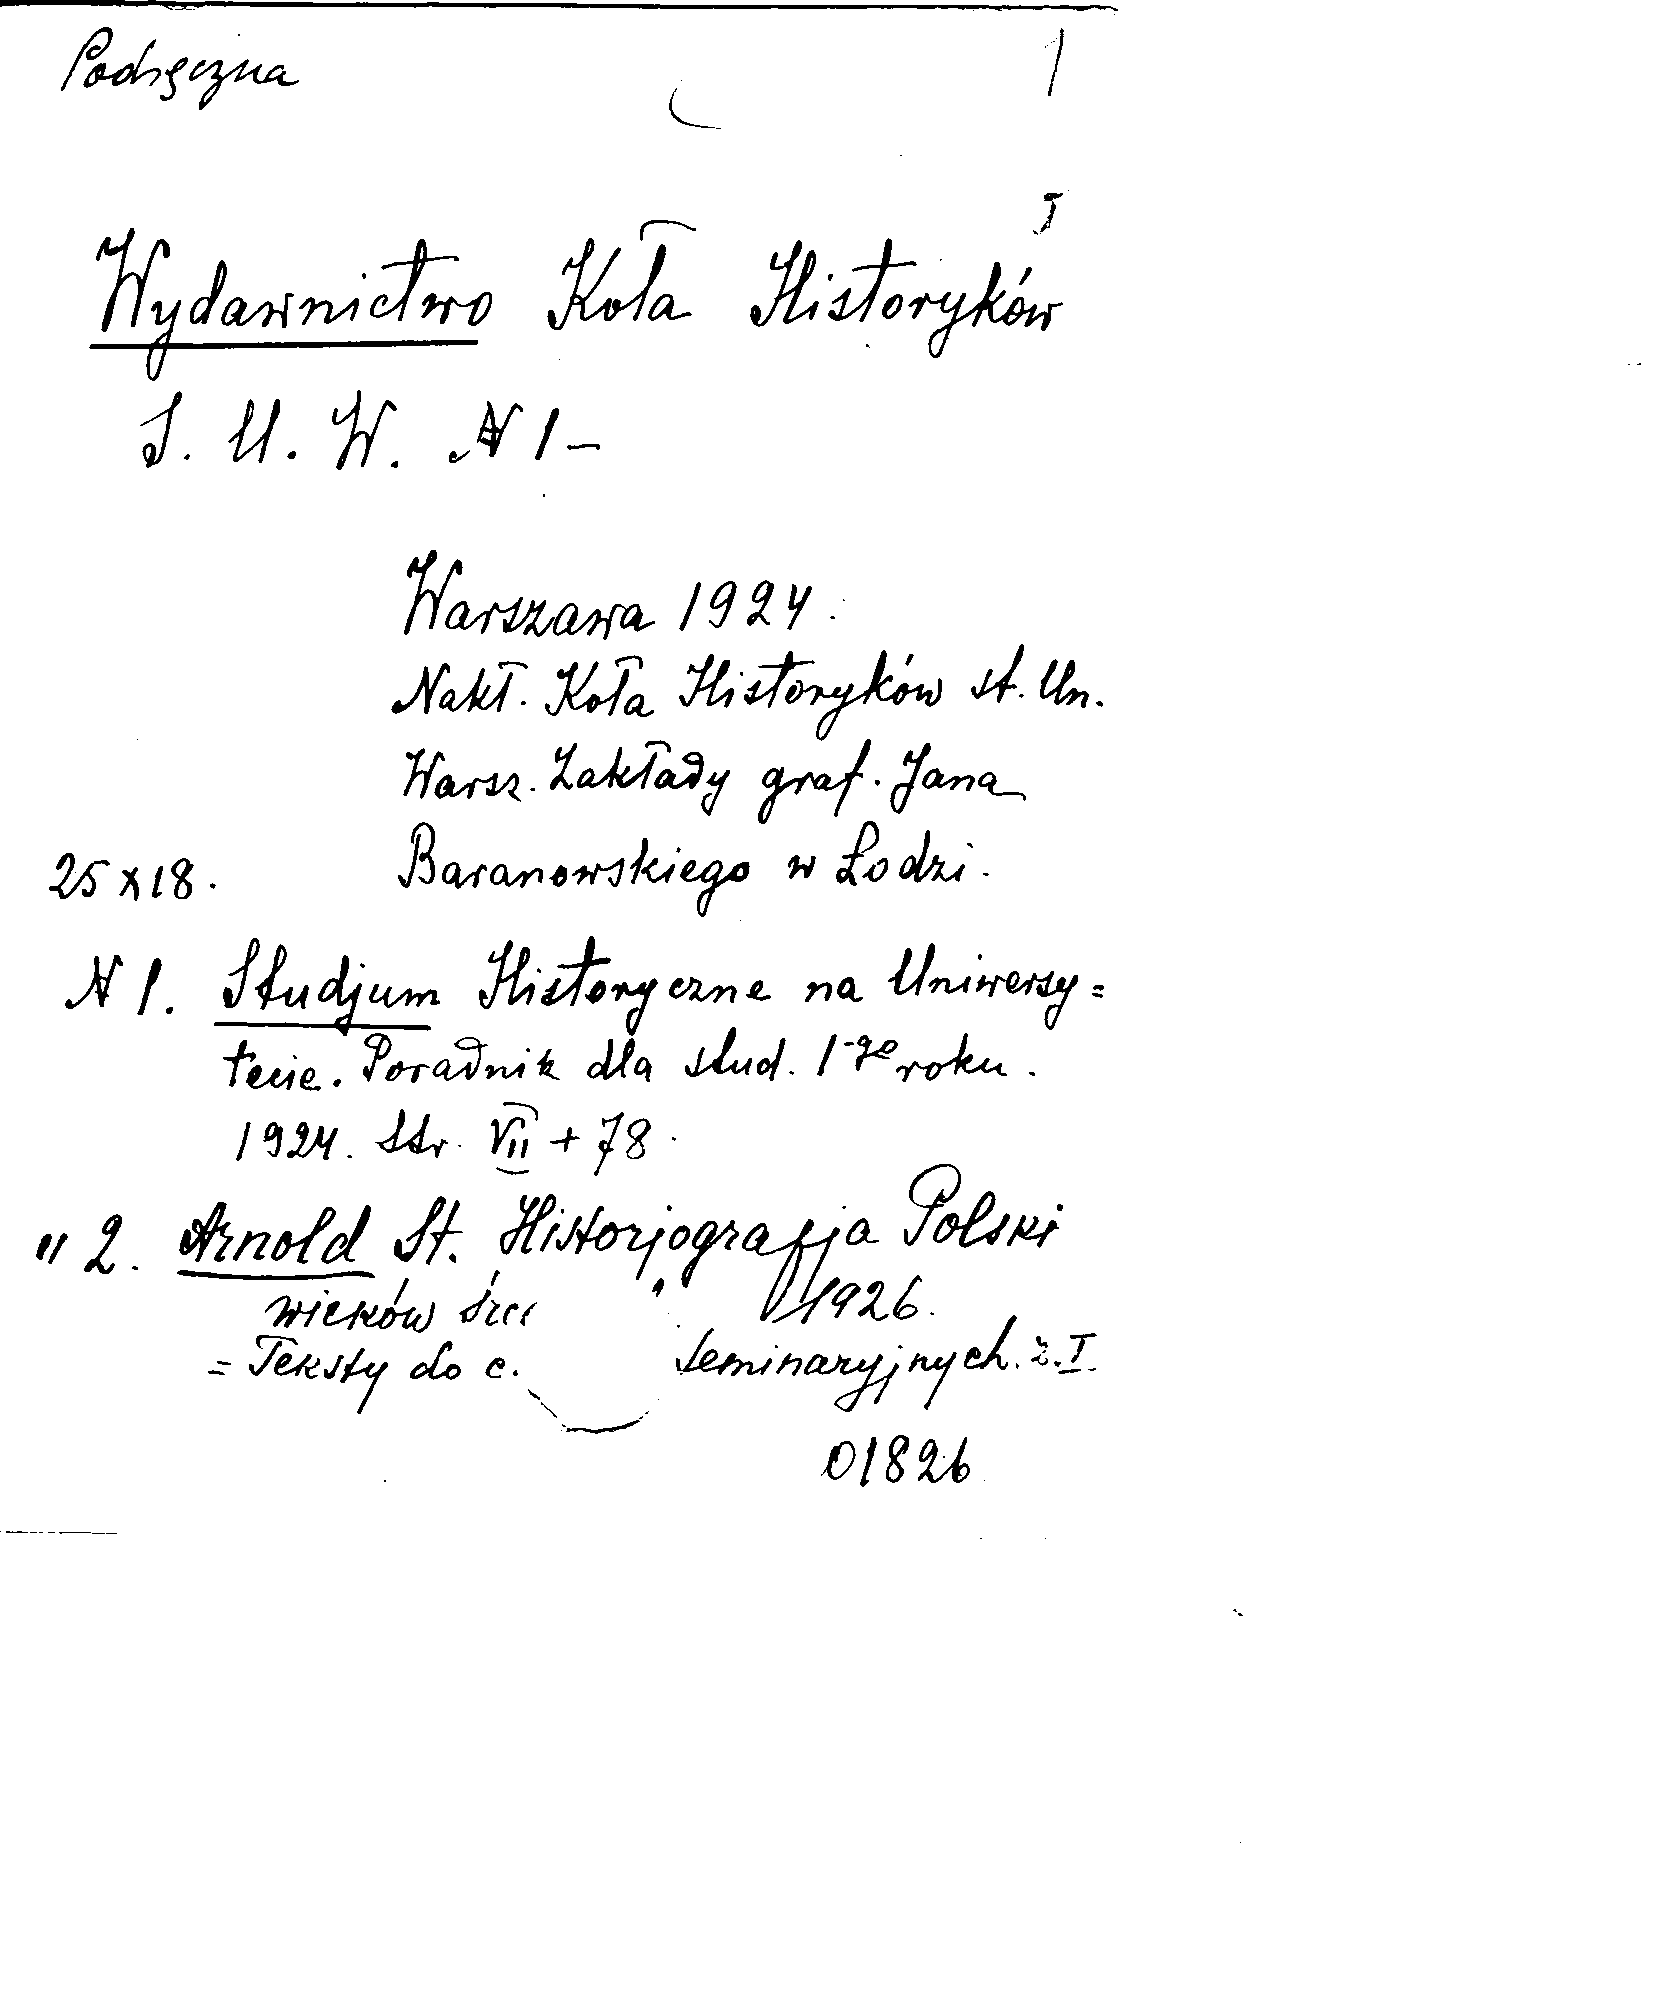 Podręczna
Wydawnictwo Koła Historyków
S. U. W. N 1 –
Warszawa 1924.
Nakł. Koła Historyków st. Un.
Warsz. Zakłady graf. Jana
Baranowskiego w Łodzi.
25 x 18.
N 1. Studjum Historyczne na Uniwersy=
tecie. Poradnik dla stud. 1-go roku.
1924. Str. VII + 78.
" 2. Arnold St. Historjografja Polski
wieków 1926.
= Teksty do seminaryjnych. z. I.
01826